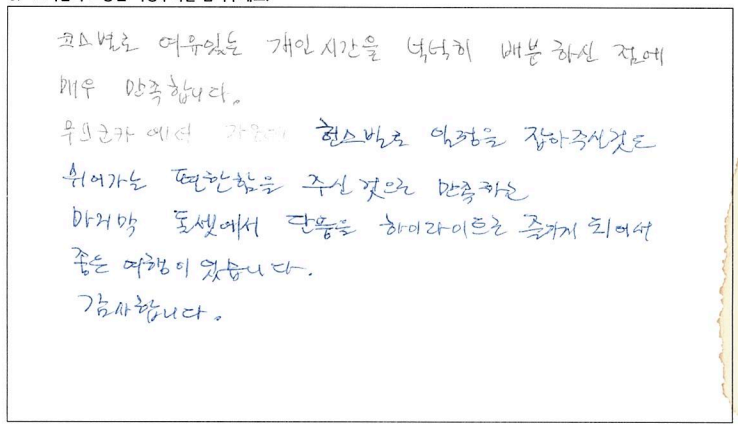 코스별로 여유있는 개인시간을 넉넉히 배분하신 점에
매우 만족합니다.
무스코카에서 헌스빌로 일정을 잡아주신것도
쉬어가는 편한함을 주신 것으로 만족하는
마지막 토셋에서 단풍을 하이라이트로 즐기게 되어서
좋은 여행이 였습니다.
감사합니다.